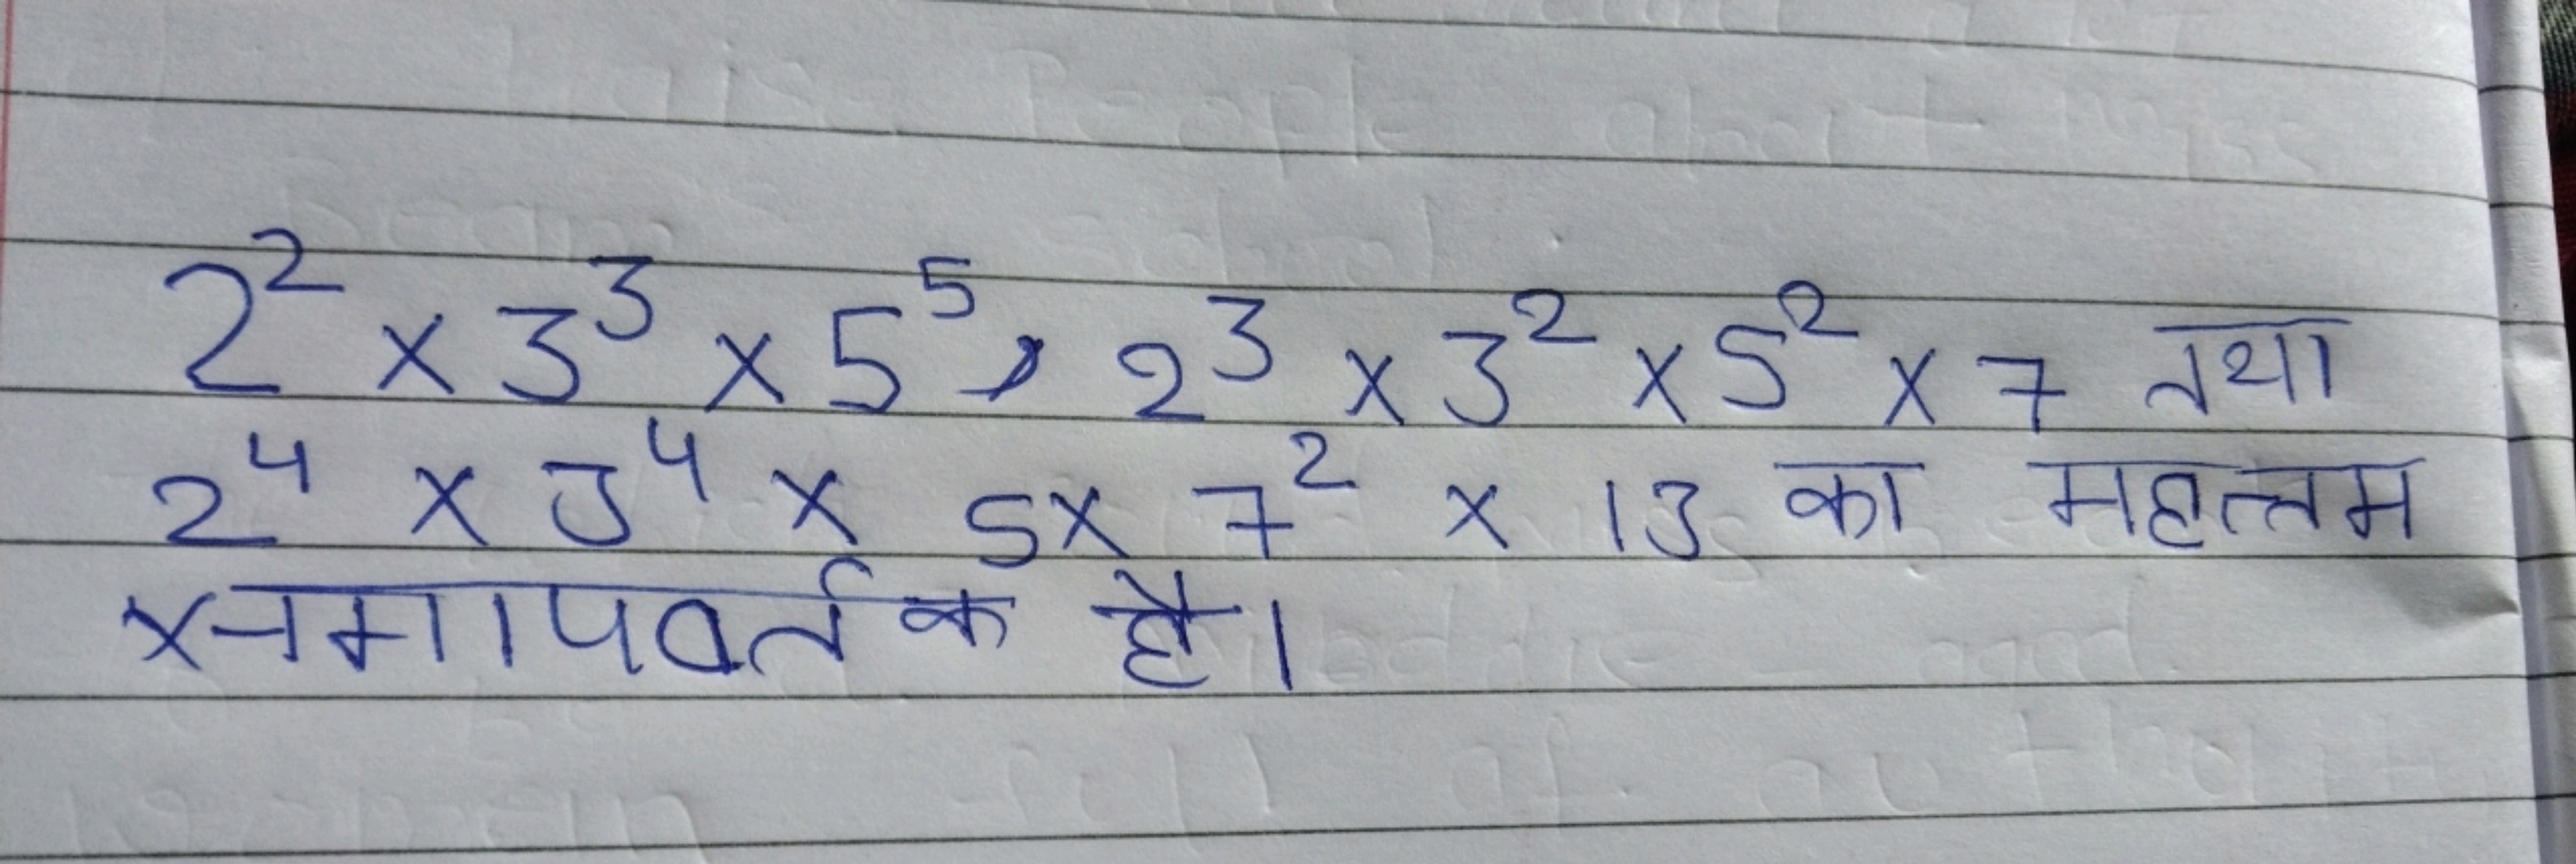 2² × 3³ × 5⁵, 2³ × 3² × 5² × 7 तथा
2⁴ × 3⁴ × 5 × 7² × 13 का महत्तम
समापवर्तक है।